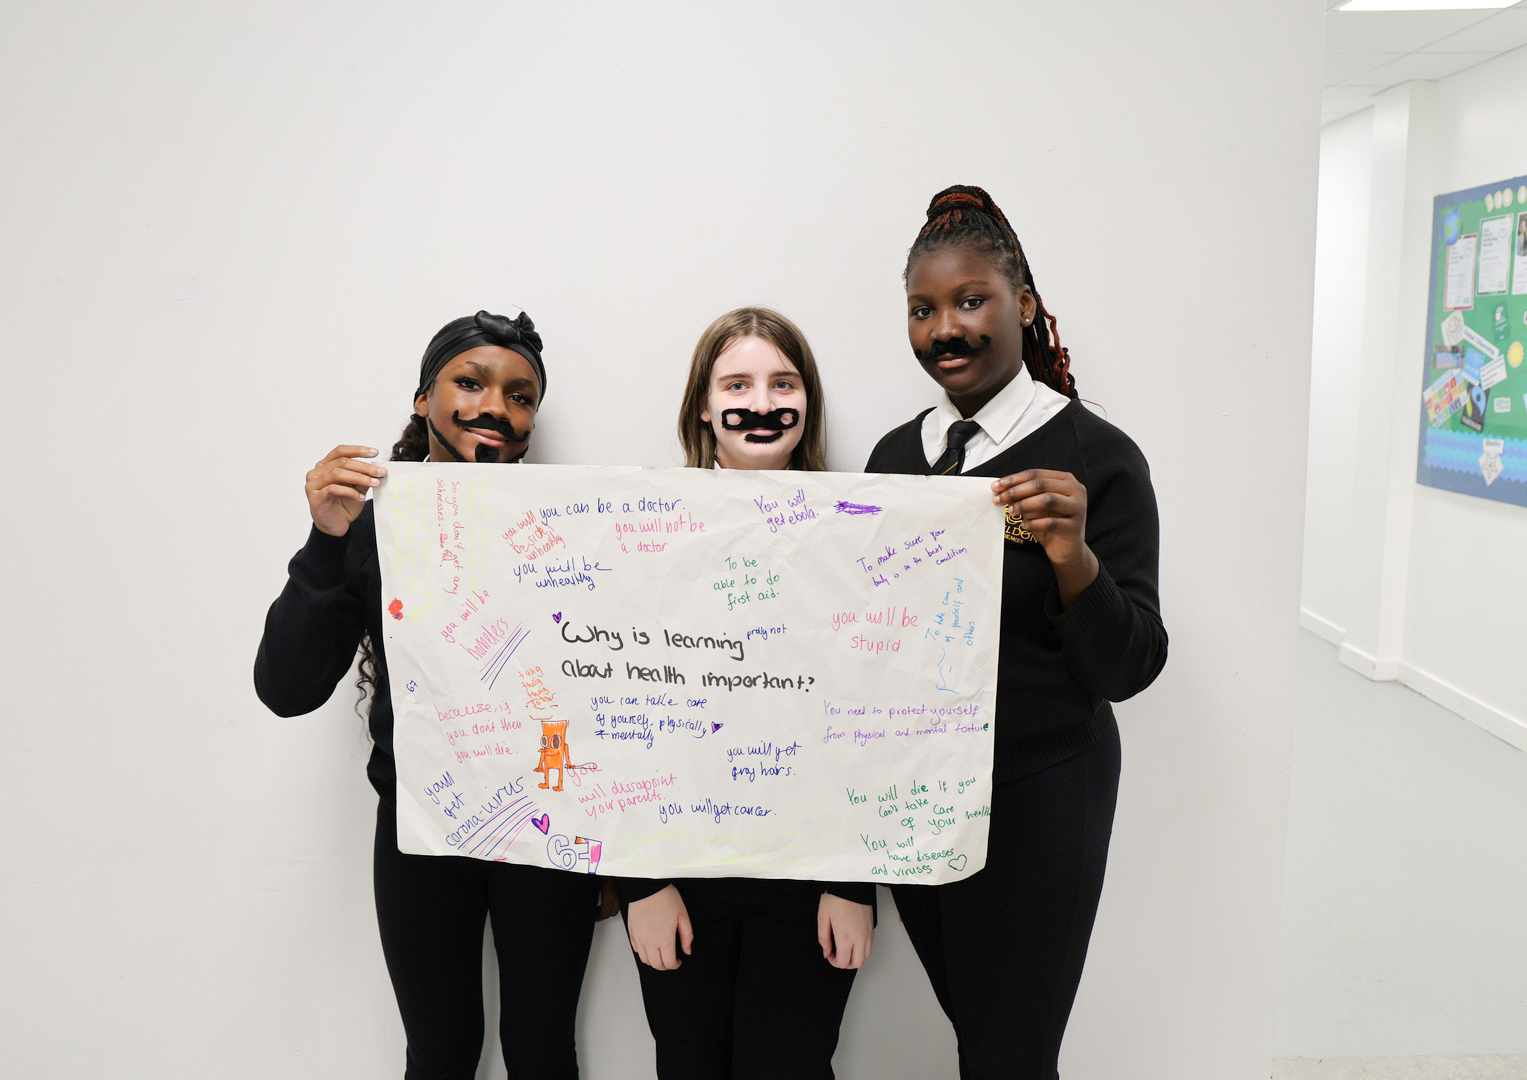 So you don't get any
sicknesses.
you will
be sick
unhealthy
you can be a doctor.
you will not be
a doctor
You will
get ebola.
you will be
unhealthy
To be
able to do
first aid.
To make sure your
body is in the best condition
you will be
stupid
To take care
of yourself and
others
you will be
Why is learning
prolly not
about health important?
67
tung
tung
tung
because, if
you don't then
you will die.
you can take care
of yourself. physically
+ mentally
You need to protect yourself
from physical and mental torture
you will get
gray hairs.
you
will dissapoint
your parents.
you will get cancer.
youll
get
corona-virus
67
You will die if you
can't take care
of your health
You will
have diseases
and viruses